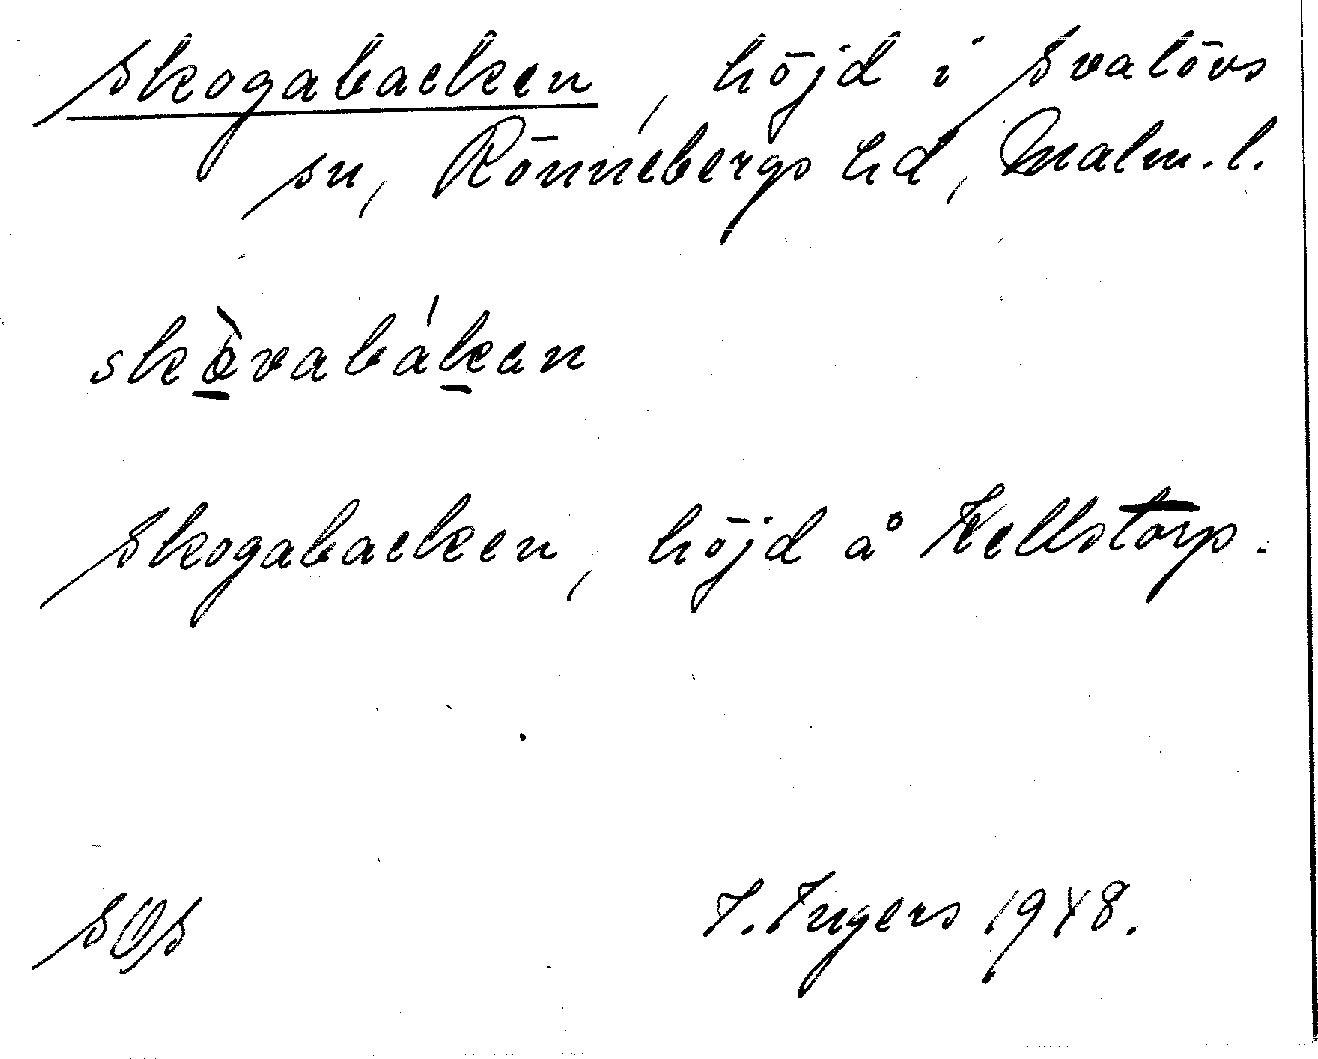 Skogabacken, höjd i Svalövs
sn, Rönnebergs hd, Malm.l.
skò̱vabáḵan
Skogabacken, höjd å Källstorp.
SOS
I. Ingers 1948.